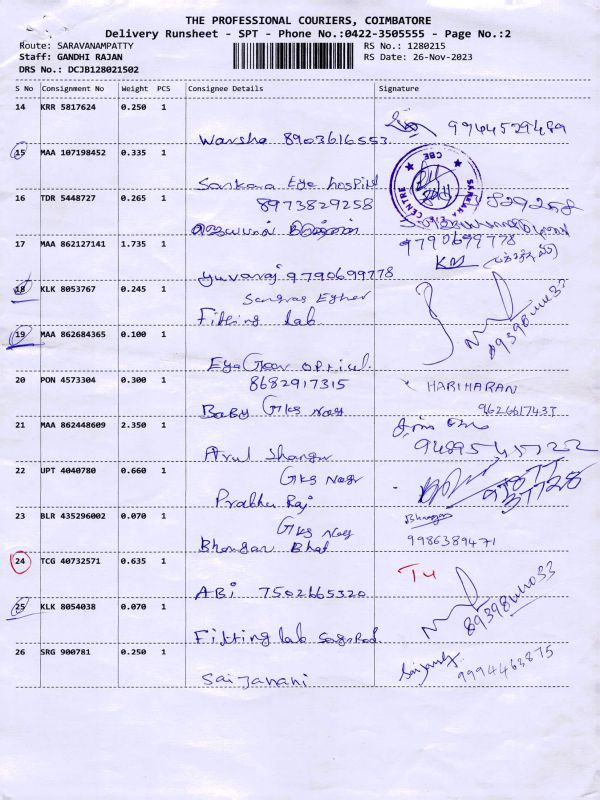 THE PROFESSIONAL COURIERS, COIMBATORE
Delivery Runsheet - SPT - Phone No.:0422-3505555 - Page No.:2
Route: SARAVANAMPATTY
RS No.: 1280215
Staff: GANDHI RAJAN
RS Date: 26-Nov-2023
DRS No.: DCJB128021502
S No Consignment No Weight PCS Consignee Details Signature
14 KRR 5817624 0.250 1
Warsha 8903616553
9944529489
15 MAA 107198452 0.335 1
Sankara Eye hospital
CENTRE SANKARA CBE
16 TDR 5448727 0.265 1
8973829258
829258
17 MAA 862127141 1.735 1
9790699778
yuvaraj 9790699778
18 KLK 8053767 0.245 1
Fitting Lab
19 MAA 862684365 0.100 1
Eye Gear optical
20 PON 4573304 0.300 1
8682917315
HARIHARAN
9626617437
Baby Gks Nagr
21 MAA 862448609 2.350 1
Arul Shangur
9489545722
22 UPT 4040780 0.660 1
Gks Nagr
Prabhu Raj
23 BLR 435296002 0.070 1
Gks Nagr
Bhangar
9986389471
Bhongar Bhat
24 TCG 40732571 0.635 1
ABi 7502665320
25 KLK 8054038 0.070 1
Fitting lab
26 SRG 900781 0.250 1
Saijanani
9994463875